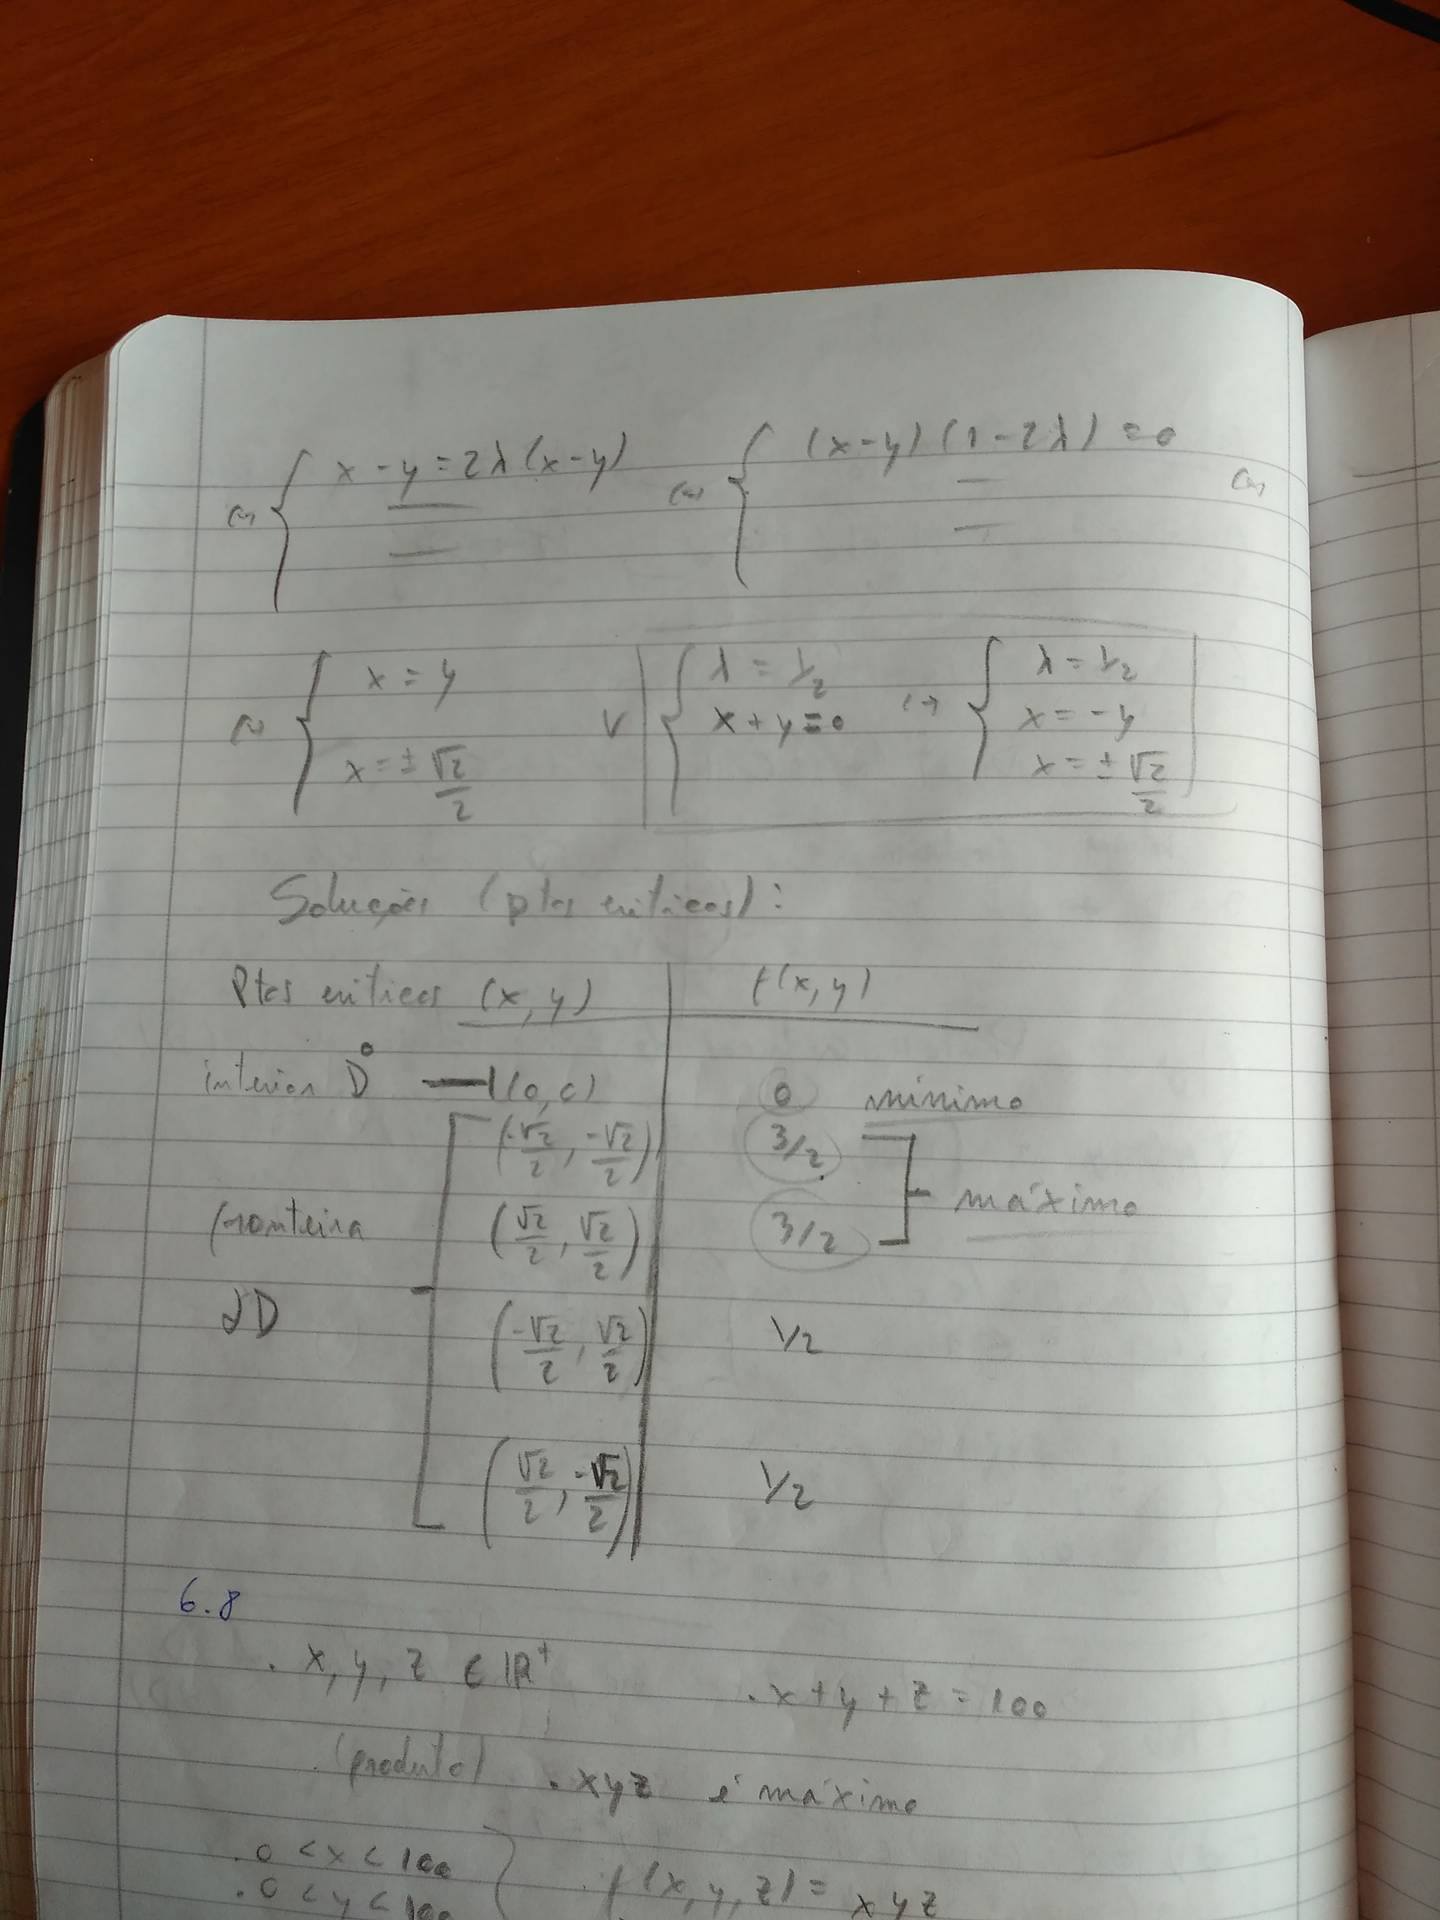 ⇔ { x - y = 2λ(x-y) ⇔ { (x-y)(1-2λ) = 0 ⇔
⇔ { x = y ∨ { λ = 1/2 ⇔ { λ = 1/2
x + y = 0 x = -y
x = ± √2/2 x = ± √2/2
Soluções (ptos críticos):
Ptos críticos (x, y) | f(x, y)
interior D° — (0,0) 0 mínimo
(-√2/2, -√2/2) 3/2
fronteira (√2/2, √2/2) 3/2 máximo
∂D (-√2/2, √2/2) 1/2
(√2/2, -√2/2) 1/2
6.8
. x, y, z ∈ IR⁺ . x + y + z = 100
(produto) . xyz é máximo
. 0 < x < 100
. 0 < y < 100 } f(x, y, z) = xyz